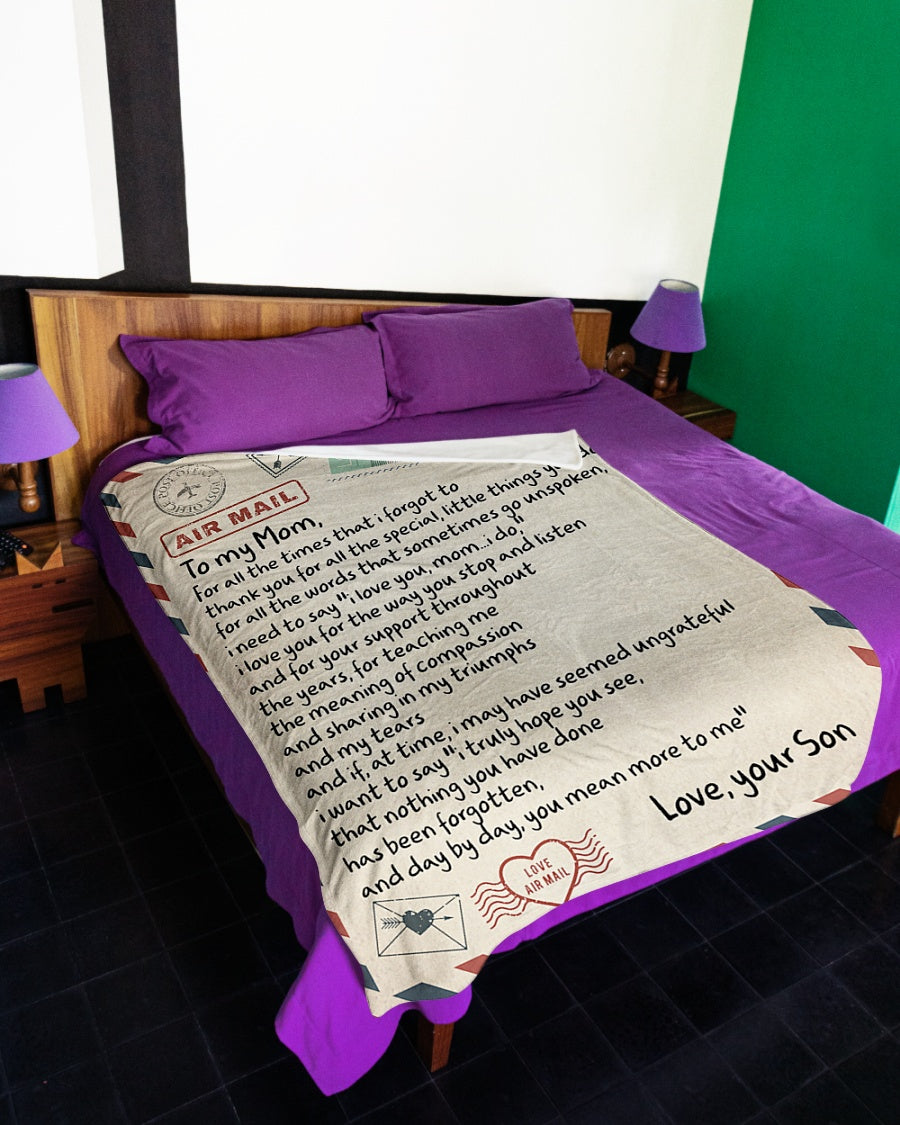 POST OFFICE POST OFFICE
AIR MAIL
To my Mom,
For all the times that i forgot to
thank you for all the special, little things you do
for all the words that sometimes go unspoken,
i need to say "i love you, mom...i do,"
i love you for the way you stop and listen
and for your support throughout
the years, for teaching me
the meaning of compassion
and sharing in my triumphs
and my tears
and if, at time, i may have seemed ungrateful
i want to say", i truly hope you see,
that nothing you have done
has been forgotten,
and day by day, you mean more to me"
Love, your Son
LOVE
AIR MAIL